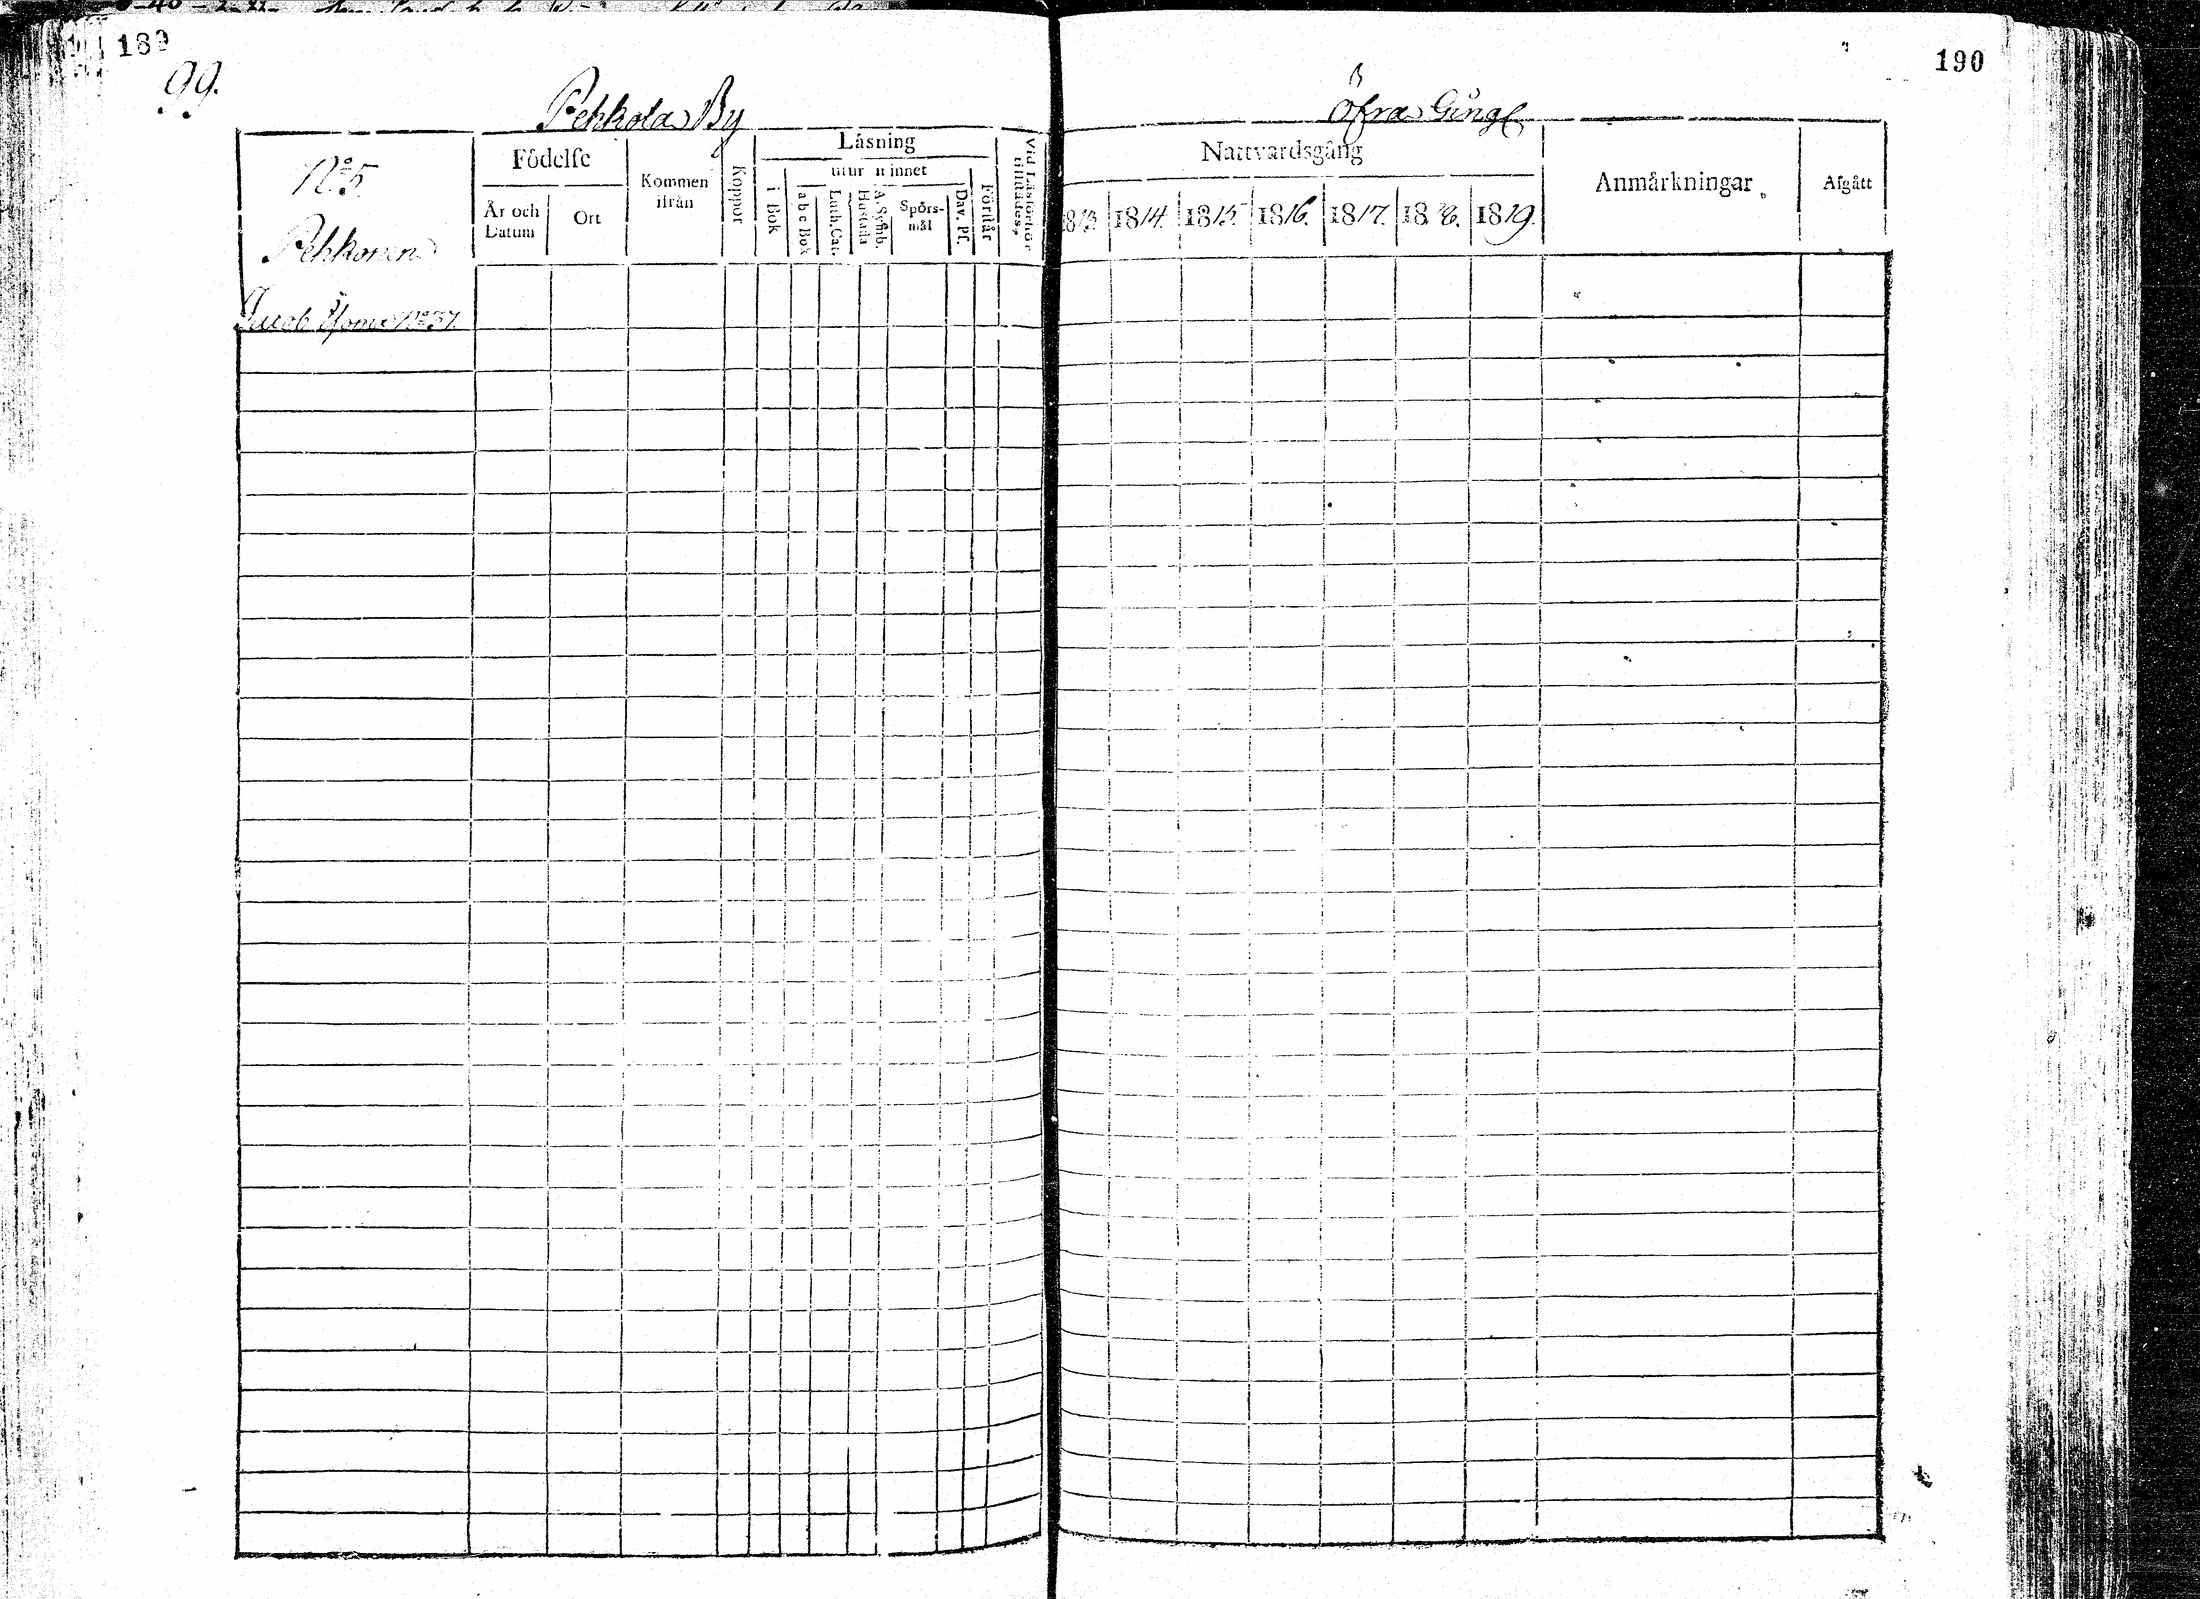 189
99.
Pekkola By
Nº 5.
Pekkonen
Födelse
År och Datum
Ort
Kommen ifrån
Koppor
Läsning
utur minnet
i Bok
abc Bok
Luth. Cat.
A. Symb.
Hustafla
Spörs-mål
Dav. Ps.
Förstår
Vid Läsförhör tillstädes
Jacob
Nº 37.
190
Öfra
Nattvardsgång
1813
1814.
1815.
1816.
1817.
1818.
1819.
Anmärkningar
Afgått